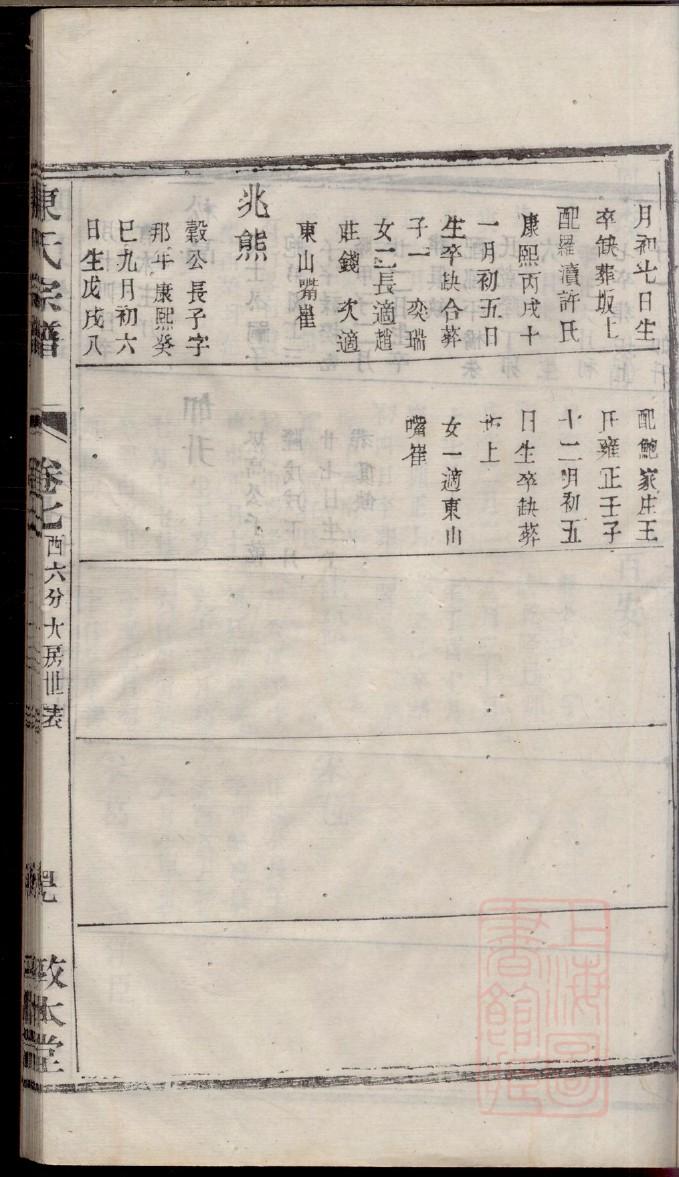 月初七日生
卒缺葬坂上
配羅瀆許氏
康熙丙戌十
一月初五日
生卒缺合葬
子一 奕瑞
女二長適趙
莊錢 次適
東山嘴崔
兆熊
穀公長子字
那年康熙癸
巳九月初六
日生戊戌八
配鮑家庄王
氏雍正壬子
十二月初五
日生卒缺葬
坂上
女一適東山
嘴崔
陳氏宗譜
卷七
酉六分大房世表
敦本堂
上海圖
書館藏